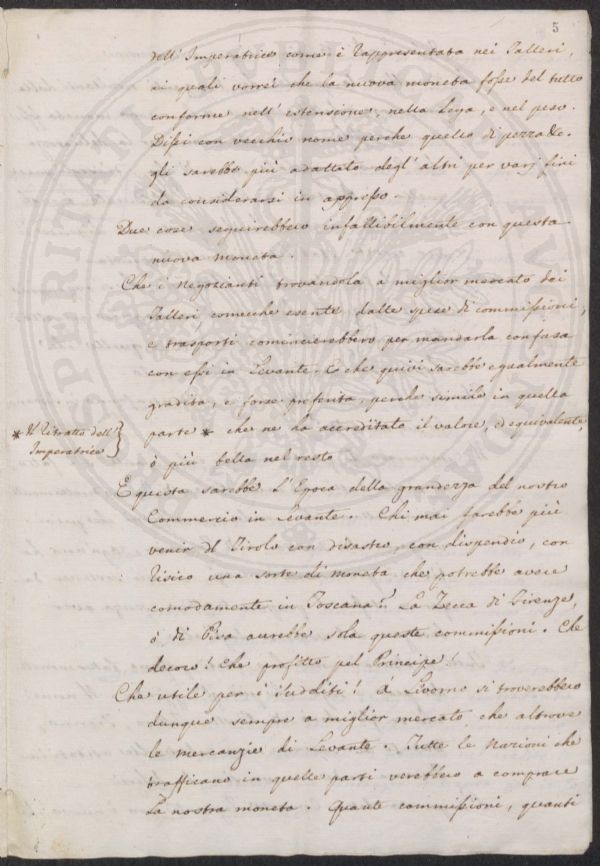 5
dell' Imperatrice come è rappresentata nei Talleri,
ai quali vorrei che la nuova moneta fosse del tutto
conforme nell' estensione, nella Lega, e nel peso.
Dissi con vecchio nome perche quello di pezza &c.
gli sarebbe più adattato degl' altri per varj fini
da considerarsi in appresso.
Due cose seguirebbero infallibilmente con questa
nuova moneta.
Che i Negozianti trovandola a miglior mercato dei
Talleri, comecche esente dalle spese di commissioni,
e trasporti comincierebbero per mandarla confusa
con essi in Levante. E che quivi sarebbe egualmente
gradita, e forse preferita, perche simile in quella
* Il Ritratto dell'
Imperatrice
parte * che ne ha accreditato il valore, ed equivalente,
ò più bella nel resto
E questa sarebbe l'Epoca della grandezza del nostro
Commercio in Levante. Chi mai farebbe più
venir dl Tirolo con disastro, con dispendio, con
risico una sorte di moneta che potrebbe avere
comodamente in Toscana? La Zecca di Firenze,
ò di Pisa aurebbe sola queste commissioni. Che
decoro! Che profitto pel Principe!
Che utile per i sudditi! A Livorno si troverebbero
dunque sempre a miglior mercato che altrove
le mercanzie di Levante. Tutte le Nazioni che
trafficano in quelle parti verebbero a comprare
la nostra moneta. Quante commissioni, quanti
PROSPERITATI PUBLICAE